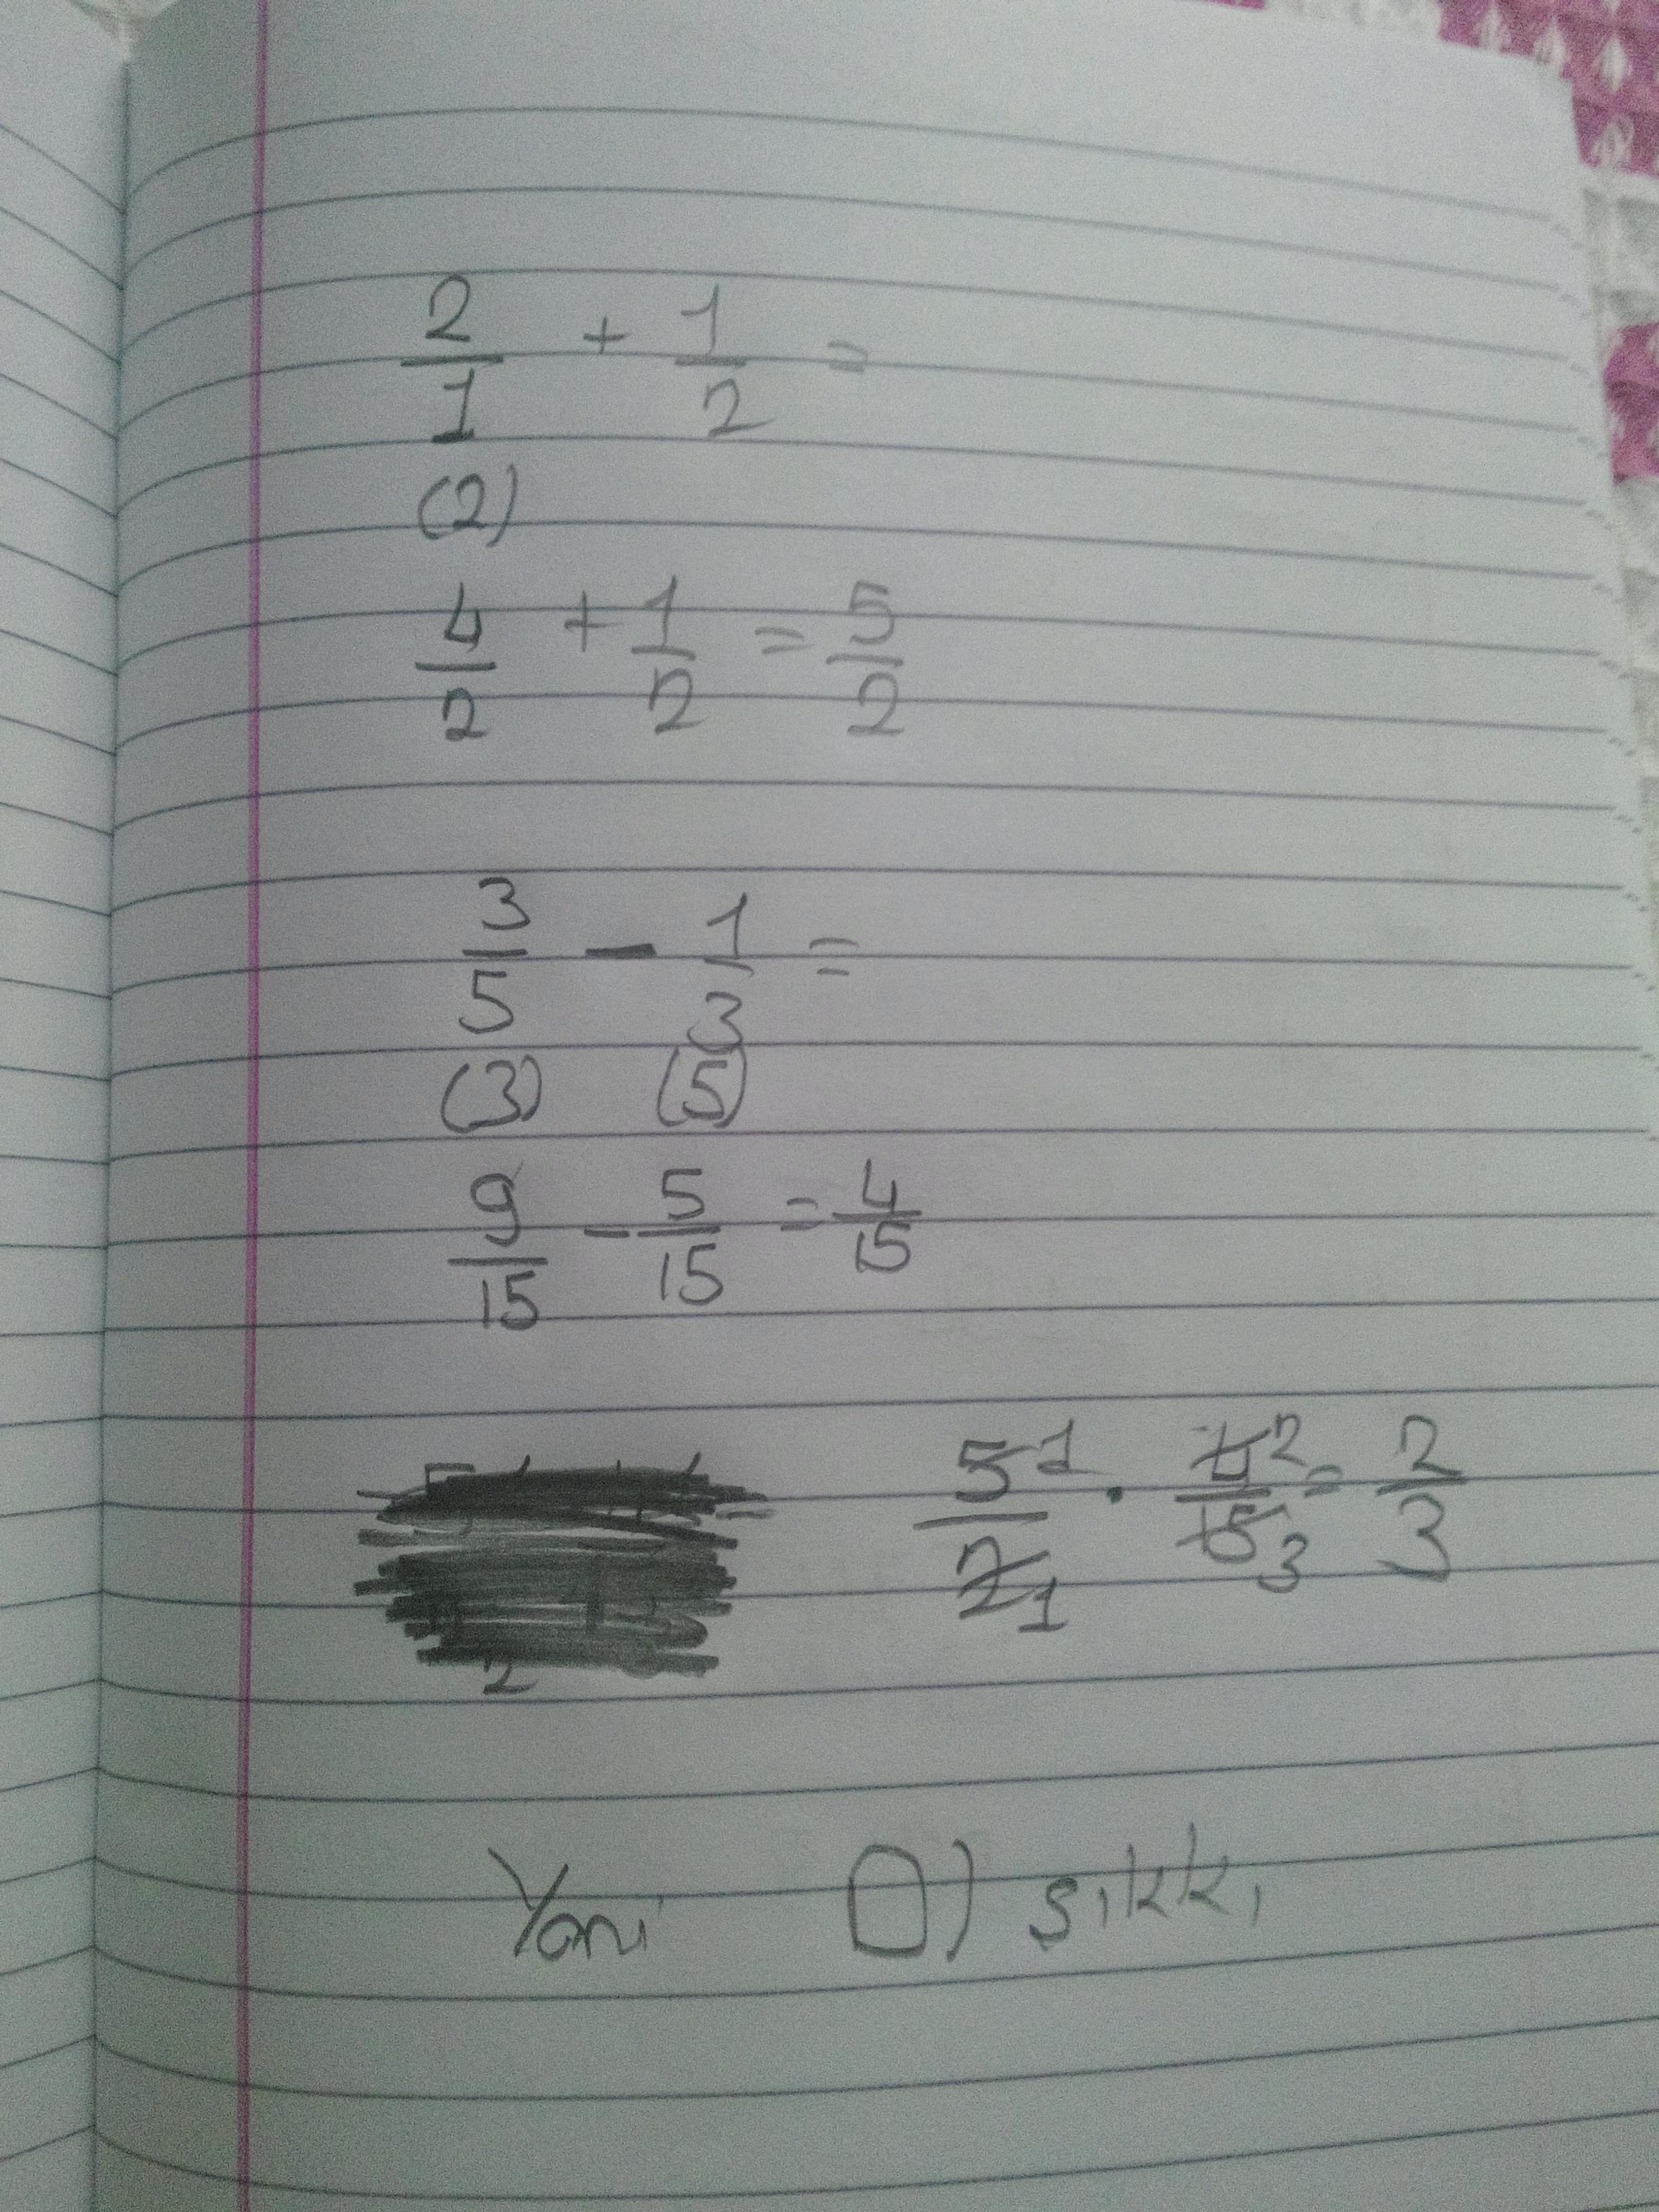 2/1 + 1/2 =
(2)
4/2 + 1/2 = 5/2
3/5 - 1/3 =
(3) (5)
9/15 - 5/15 = 4/15
5 1/2 1 · 4 2/15 3 = 2/3
Yani D) şıkkı